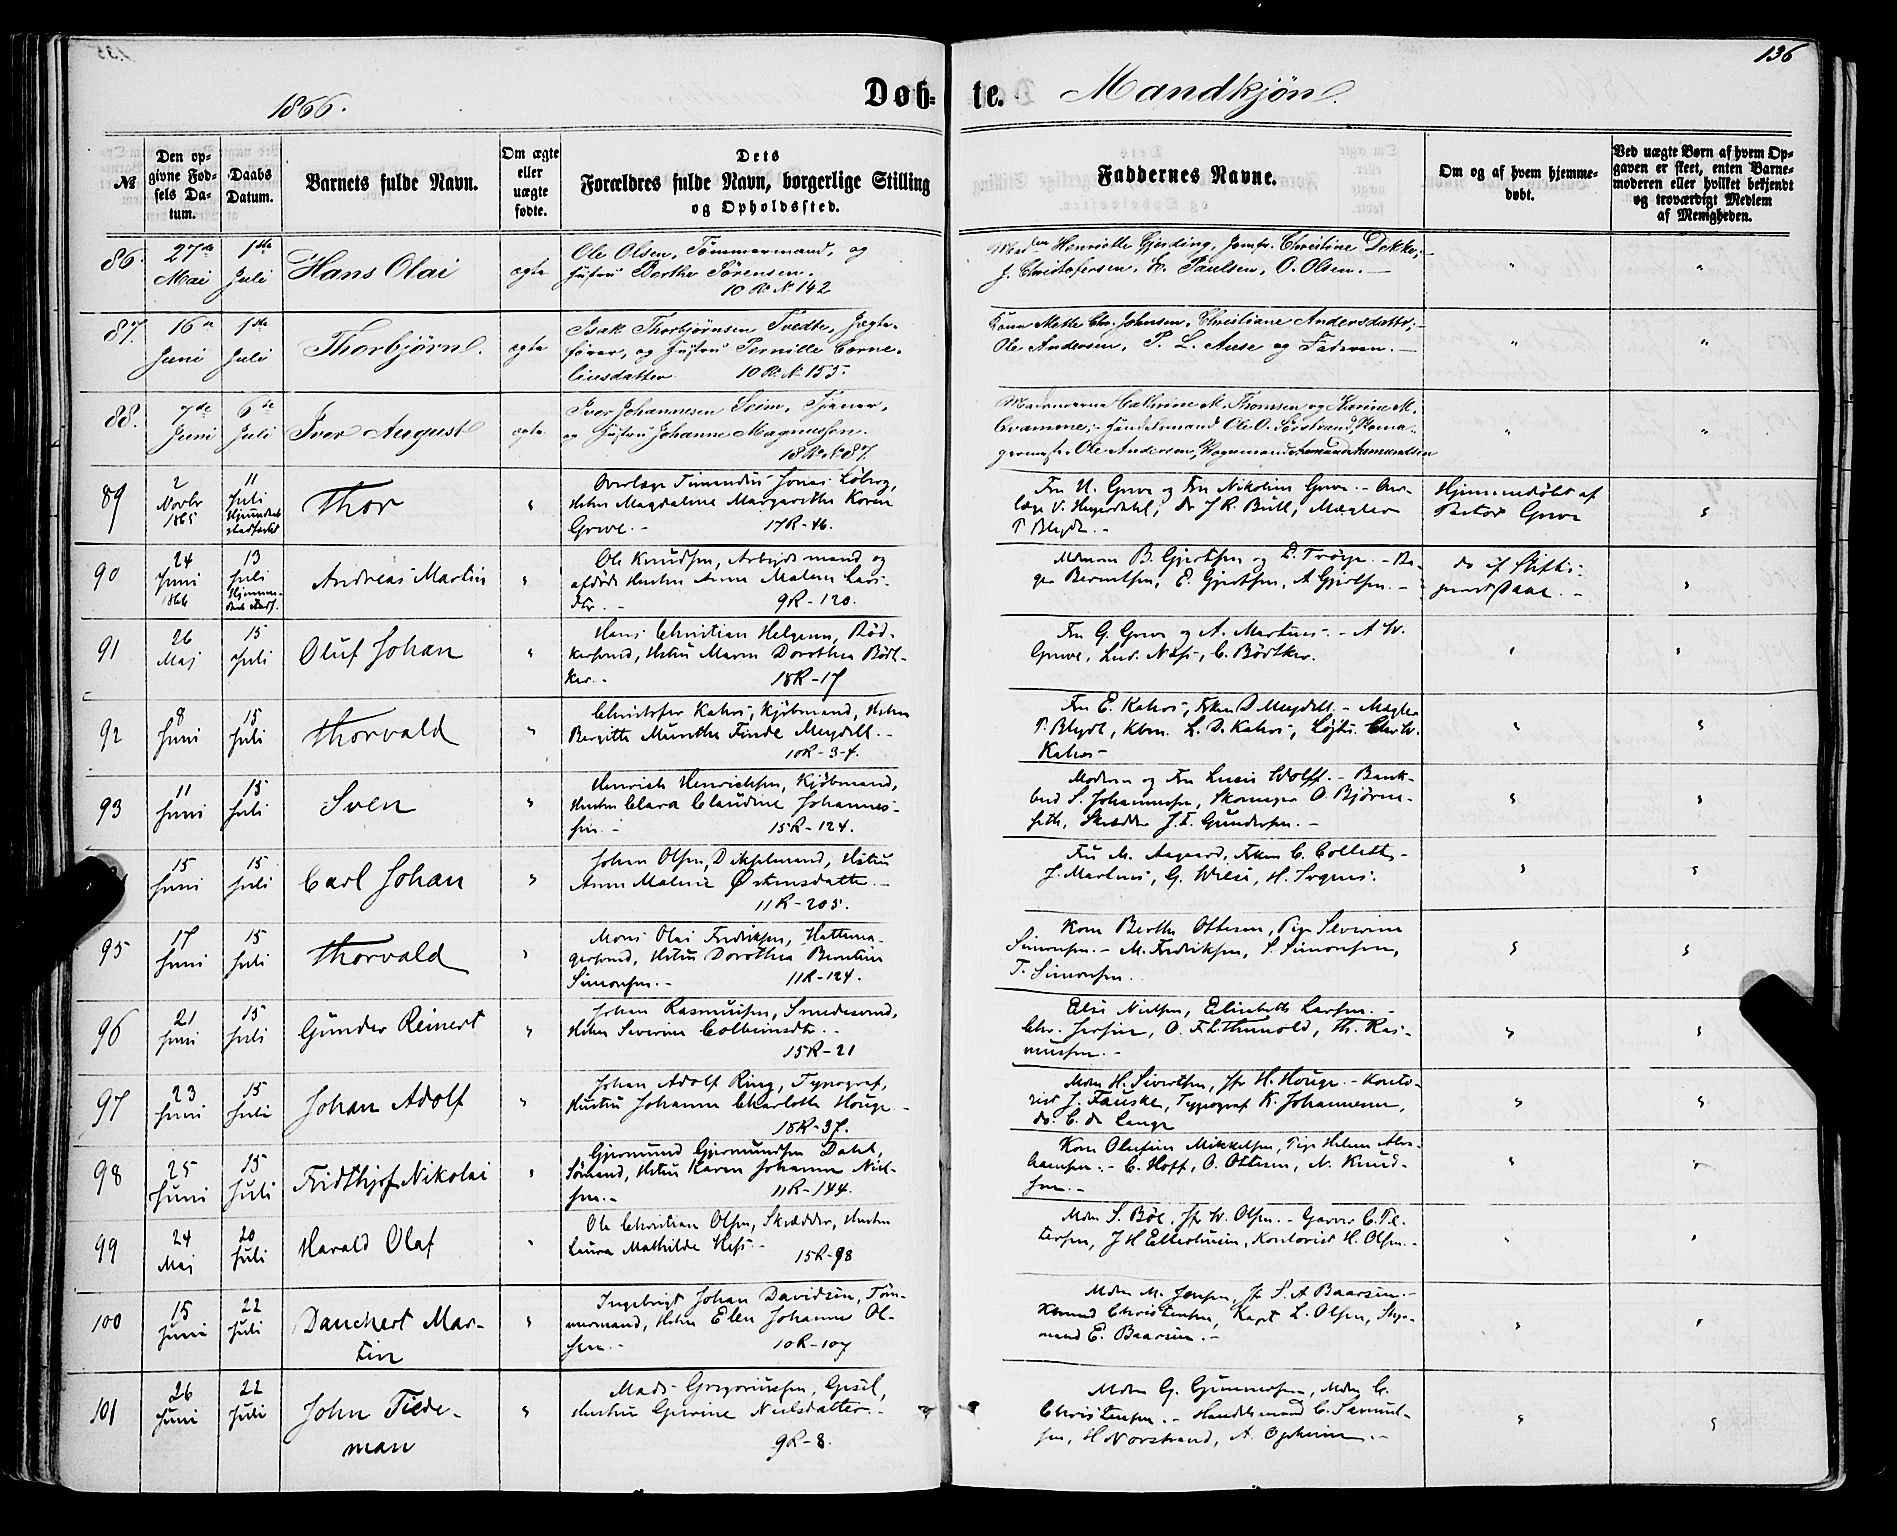 136
1866.
Døb-te. Mandkjøn.
№
Den opgivne Fødsels Datum.
Daabs Datum.
Barnets fulde Navn.
Om ægte eller uægte fødte.
Dets Forældres fulde Navn, borgerlige Stilling og Opholdssted.
Faddernes Navne.
Om og af hvem hjemmedøbt.
Ved uægte Børn af hvem Opgaven er skeet, enten Barnemoderen eller hvilket bekjendt og troværdigt Medlem af Menigheden.
86. 27de Mai 1ste Juli Hans Olai ægte
Ole Olsen, Tømmermand, og
Hustru Berthe Sørensen.
10 R. N. 142
Henriette Gjerding, Jomfr. Christine Dekke,
J. Christofersen, Paulsen, O. Olsen.
87. 16 Juni 1ste Juli Thorbjørn. ægte
Isak Thorbjørnsen Tvedte, Jægte-
fører, og Hustru Pernille Corne-
liusdatter 10 R. N. 153.
Kone Mette Chr. Johnsen, Christiane Andersdatter,
Ole Andersen, P. L. Aase og Faderen.
88. 7de Juni 6te Juli Iver August ægte
Iver Johannesen Seim, Tjener,
og Hustru Johanne Magnussen.
18 R. N. 87.
Madamerne Cathrine M. Thomsen og Karine M.
Handelsmand Ole O.
Ole Andersen, Vognmand
89 2 Novbr 1865 11 Juli Thor
Overlæge Timandus Jonas Løberg,
Hstru Magdalene Margarethe Koren
Greve. 17R-46.
Fru N. Greve og Fru Nikoline Greve. - Over-
læge V. Dr J R. Bull, Mægler
T Blydt.
Hjemmedøbt af
Pastor Greve
90 24 Juni 1866 13 Juli Andreas Martin
Ole Knudsen, Arbejdsmand og
afdøde Hustru Anne Malene Lars-
dtr. 9R-120.
Madam B. Gjertsen og
Berntsen, E. Gjertsen, A Gjertsen.
do af Stifts-
91 26 Maj 15 Juli Oluf Johan
Hans Christian Helgesen, Bød-
kersvend, Hstru Maren Dorothea Bødt-
ker. 18R-17
Fru G. Greve og A. Martens. - A W.
Greve, Lud. Næss, C. Bødtker.
92 8 Juni 15 Juli Thorvald
Christofer Kahrs, Kjøbmand, Hstru
Bergitte Munthe Finde Meydell.
10R-34.
Fru E. Kahrs, Frkn D Meydell. - Mægler
T. Blydt, Kbm. L. D. Kahrs, Løjtn. Chr W.
Kahrs
93 11 Juni 15 Juli Sven
Henrich Henrichsen, Kjøbmand,
Hustru Clara Claudine Johannes-
sen. 15R-124.
Moderen og Fru Lucie Wolff. - Bank-
bud S. Johannesen, Skomager O. Bjørne-
seth, Skrædder J. T. Gundersen.
15 Juni 15 Juli Carl Johan
Johan Olsen, Dikselmand, Hstru
Anne Malene Østensdatter.
11R-205.
Fru M. Aagaard, Frkn C. Collett,
J. Martens, G. Wiese, H.
95 17 Juni 15 Juli Thorvald
Mons Olai Fredriksen, Hattema-
gersvend, Hstru Dorothea Berntine
Simonsen. 11R-124.
Kone Berthe Ottesen, Pige Severine
Simonsen. - M. Fredriksen, S. Simonsen,
T. Simonsen.
96 21 Juni 15 Juli Gunder Reinert
Johan Rasmussen, Smedesvend,
Hstru Severine Colbeinsdtr.
15R-21
Elise Nielsen, Elisabeth Larsen.
Chr. O. Th. Ras-
mussen.
97 23 Juni 15 Juli Johan Adolf
Johan Adolf Ring, Typograf,
Hustru Johanne Charlotte Houge
18R-37.
Mdm H. Sivertsen, Jfr H. Houge. - Konto-
rist J. Fauske, Typograf K. Johannesen,
do. C. de Lange
98 25 Juni 15 Juli Fridthjof Nikolai
Gjermund Gjermundsen Dahl,
Sømand, Hstru Karen Johanne Niel-
sen. 11R-144.
Kone Olufine Mikkelsen, Pige Helene Abra-
hamsen. - C. Hoff, O. Ottesen, N. Knud-
sen.
99 24 Maj 20 Juli Harald Olaf
Ole Christian Olsen, Skrædder, Hustru
Laura Mathilde Hess
15R-98
Mdm S. Bøe, Jfr W. Olsen. - Garver C. Pe-
tersen, J H Ellerhusen, Kontorist H. Olsen.
100 15 Juni 22 Juli Danchert Mar-
tin
Ingebrigt Johan Davidsen, Tøm-
mermand, Hstru Elen Johanne Ol-
sen. 10R-107
Mdm M. Jensen, Jfr S. A Baarsen.
Christensen, Kapt L. Olsen, Styr-
mand E. Baarsen.
101 26 Juni 22 Juli John Tiede-
man
Mads Gregoriussen, Gesel,
Hustru Gurine Nielsdatter.
9R-8.
Mdm G. Gunnersen, Mdm C.
Christensen. - Handelsmand C. Samuel-
sen, H Norstrand, A. Opheim.